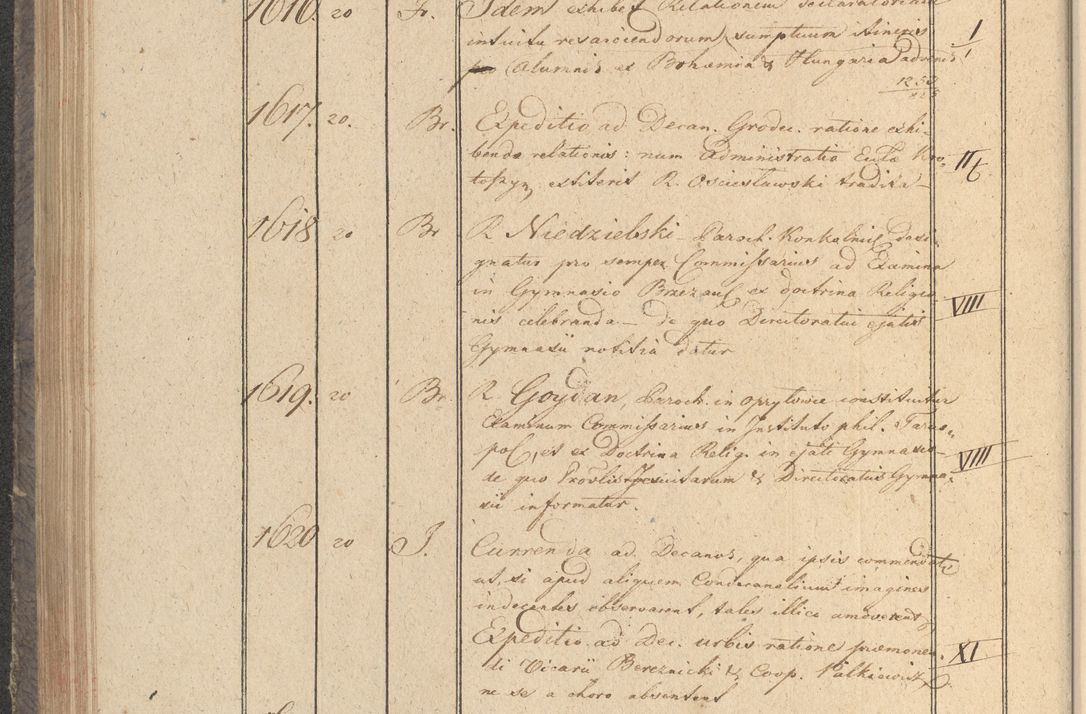 1616. 20 Fr. Idem exhibet Relationem declaratoriam
intuitu resarciendorum sumptuum itineris 1/1
Alumnis ex Bohæmia & Hungaria advenis
1617. 20. Br. Expeditio ad Decan. Grodec. ratione exhi-
bendæ relationis: num Administratio Eclæ Kro- II
toszyn, extiterit R. Oscieslawski tradita
1618 20 Br R Niedzielski Paroch. Konkolnic desi-
gnatur pro semper Commissarius ad Examina
in Gymnasio Brzezan ex doctrina Religio-
nis celebranda — de quo Directoratui ejatis VIII
Gymnasii notitia datur
1619. 20 Br. R Goydan, Paroch. in Oprytowce constituitur
Examinum Commissarius in Instituto phil. Tarno-
pol, et ex Doctrina Relig. in ejati Gymnasio VIII
de quo Provlis Jesuitarum & Directoratus Gymna-
sii informatur.
1620 20 J. Currenda ad Decanos, qua ipsis commendatur
ut, si apud aliquem Condecanalium imagines
indecentes observarent, tales illico amoverent
Expeditio ad Dec. urbis ratione præmonen- XI
di Vicarii Bereznicki & Coop. Palkiewicz,
ne se a choro absentent